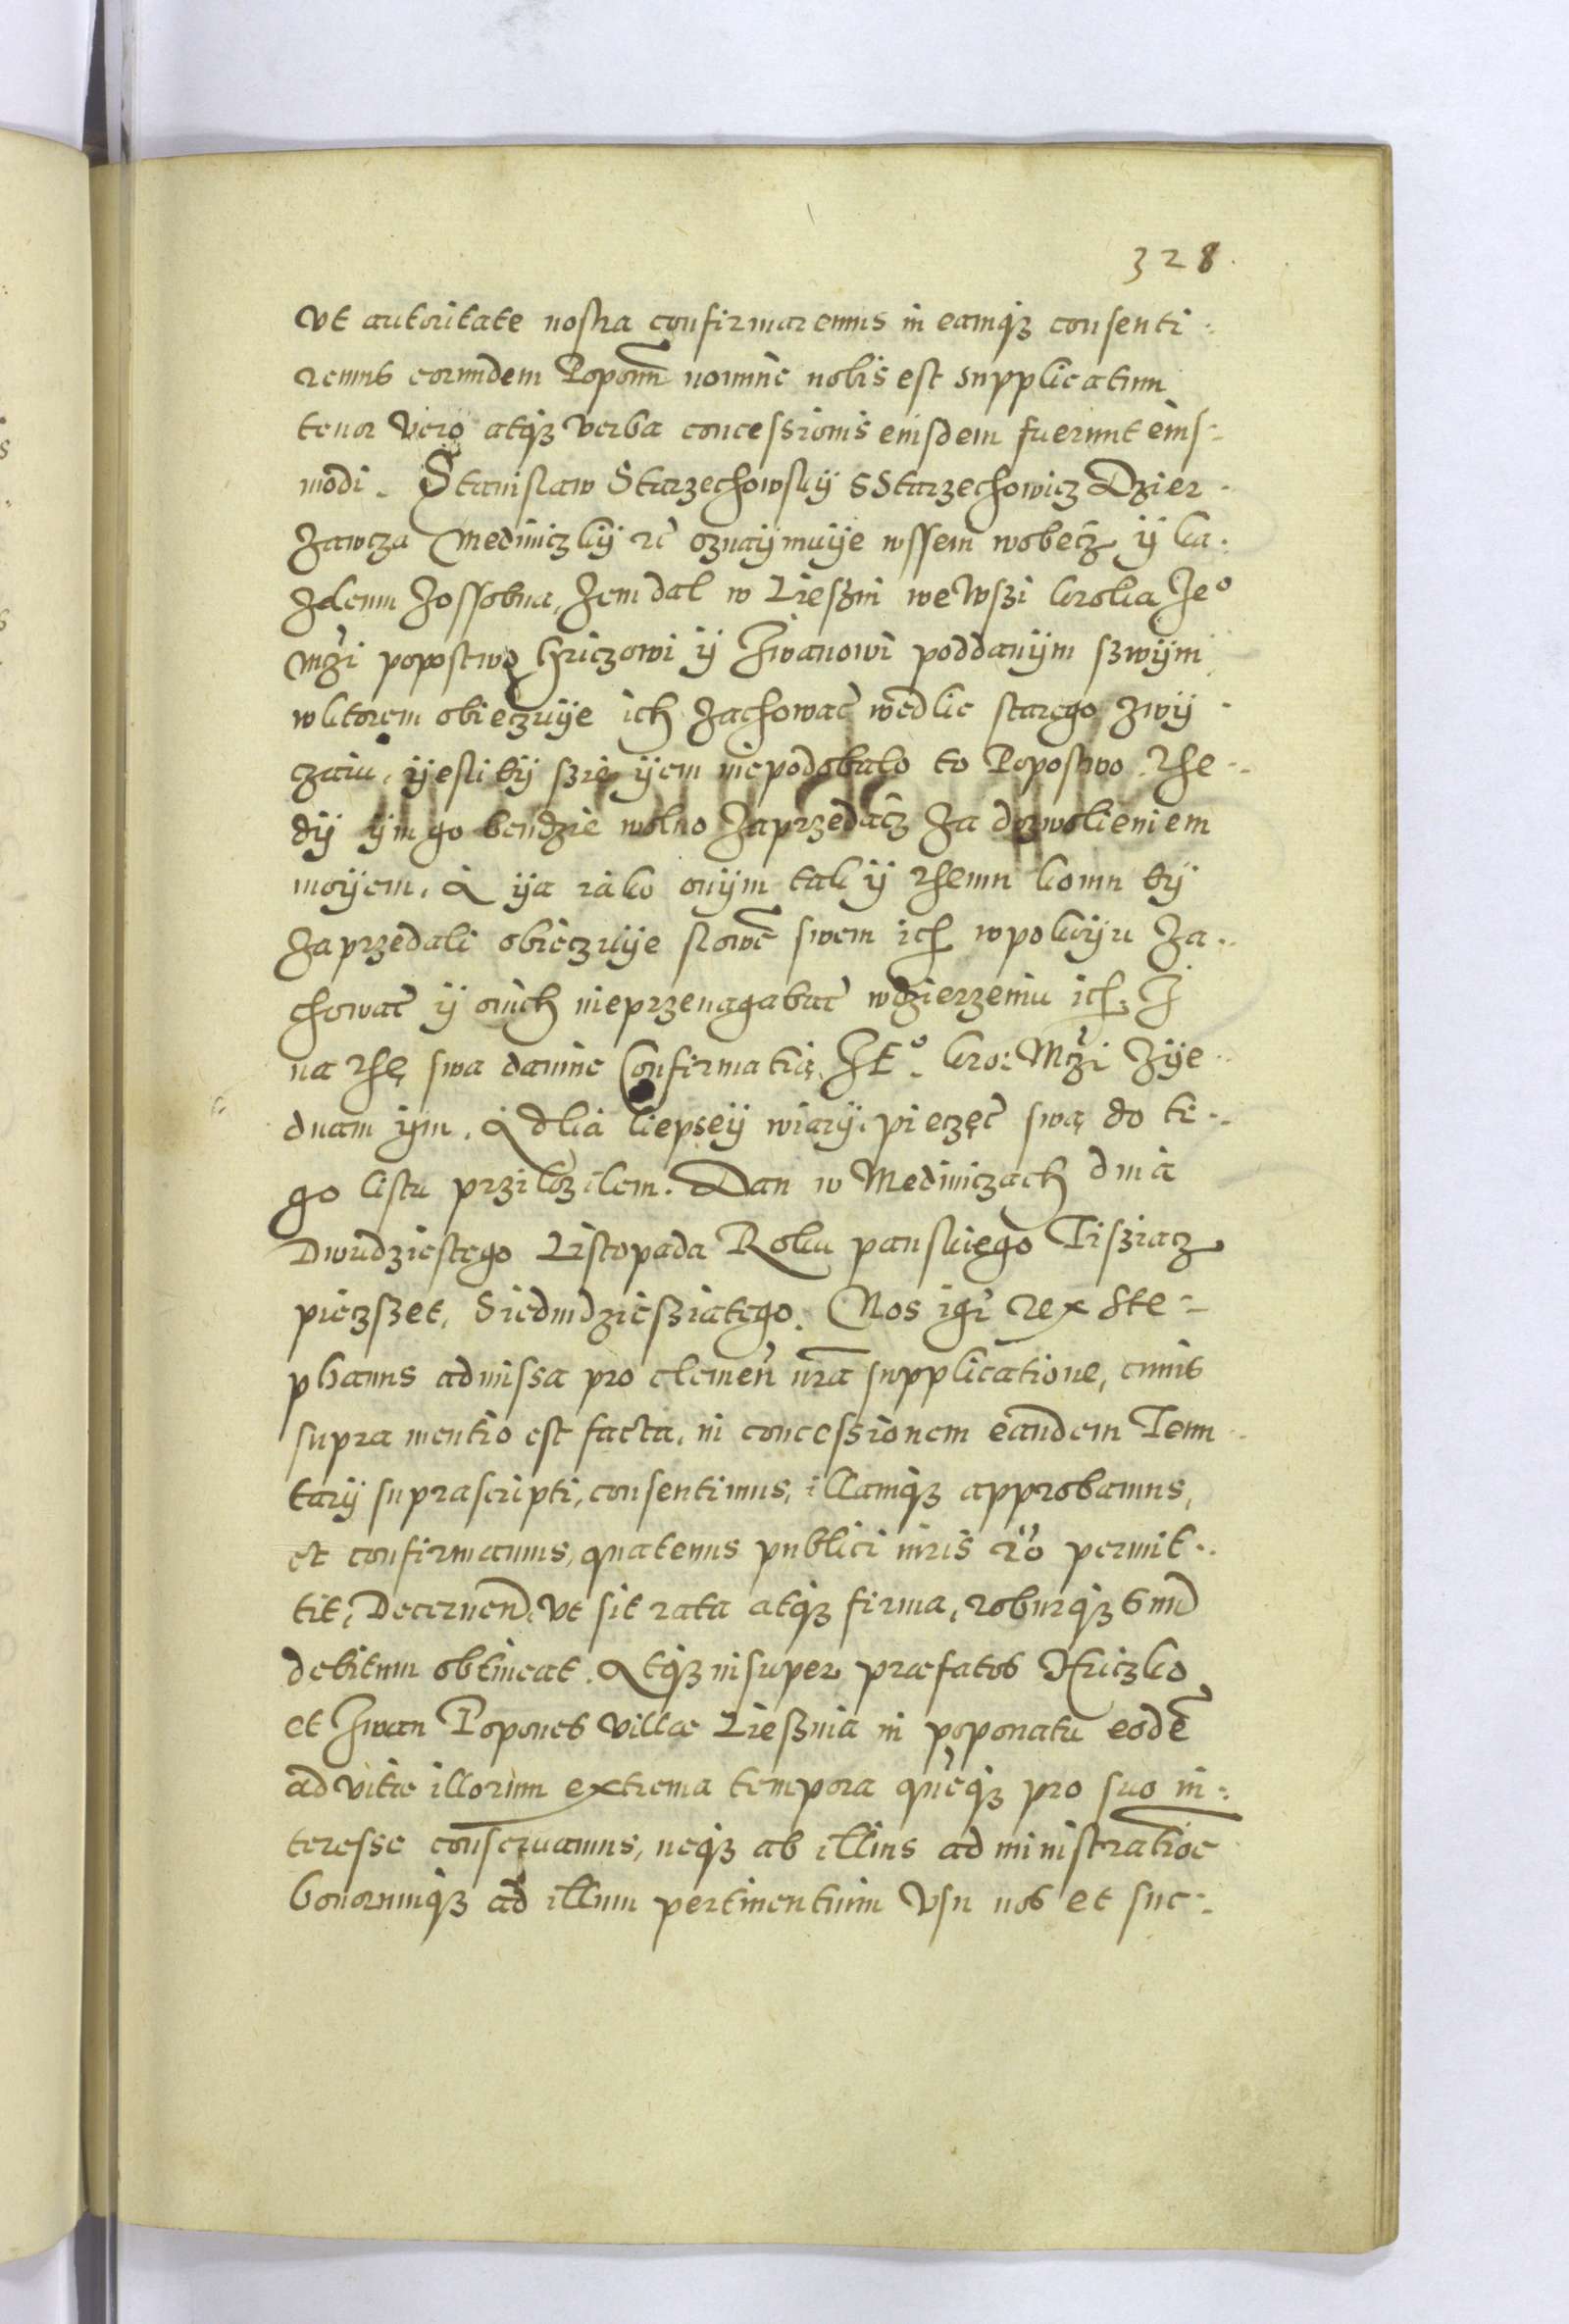 328.
Vt autoritate nostra confirmaremus in eamq3 consenti:
remus eorumdem Poponũ nomine nobis est supplicatum
tenor Vero atq3 verba concessionis eiusdem fuerunt eius:
modi. Stanislaw Starzechowsky S Starzechowicz Dzier-
zawcza Mediniczky rc̃ oznaymuye wssem wobecz y ka-
zdemu zossobna, zem dal w Lieszni we Wszi krolia Je°
Mczi popostwo Hriczowi y Iwanowi poddanym szwym
w ktorem obieczuye ich zachowac wedlie starego zwy-
czaiu, yesli by szie yem niepodobalo to Popostwo. The-
dy ym go bendzie wolno zaprzedacz za dozwolieniem
moyem. A ya iako onym tak y themu komu by
zaprzedali obieczuye slowẽ swem ich w pokoyu za-
chowac y onich nieprzenagabac w dzierzeniu ich. I
na thę swa danine Confirmatią IE°. kro: Mczi zye-
dnam ym. A dlia liepsey wiary pieczęc swą do te-
go listu przilozilem. Dan w Mediniczach dnia
Dwudziestego Listopada Roku panskiego Tisziacz
pieczszet, Siedmdziesziatego. Nos igr̃ rex Ste-
phanus admissa pro clemeñ nr̃a supplicatione, cuius
supra mentio est facta, in concessionem eandem Tenu-
tarij suprascripti, consentimus, illamq3 approbamus,
et confirmamus, quatenus publici iuris rõ permit-
tit, Decernend. Vt sit rata atq3 firma, roburq3 suũ
debitum obtineat. Atq3 insuper praefatos Hriczko
et Iwan Popones villae Liesznia in poponatu eodẽ
ad vitae illorum extrema tempora queq3 pro suo in:
teresse conseruamus, neq3 ab illius administratiõe
bonorumq3 ad illum pertinentium Vsu nos et suc-